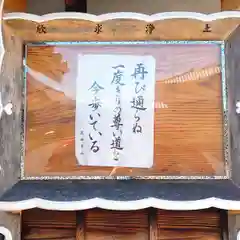 欣求浄土
再び通らぬ
一度きりの尊い道を
今歩いている